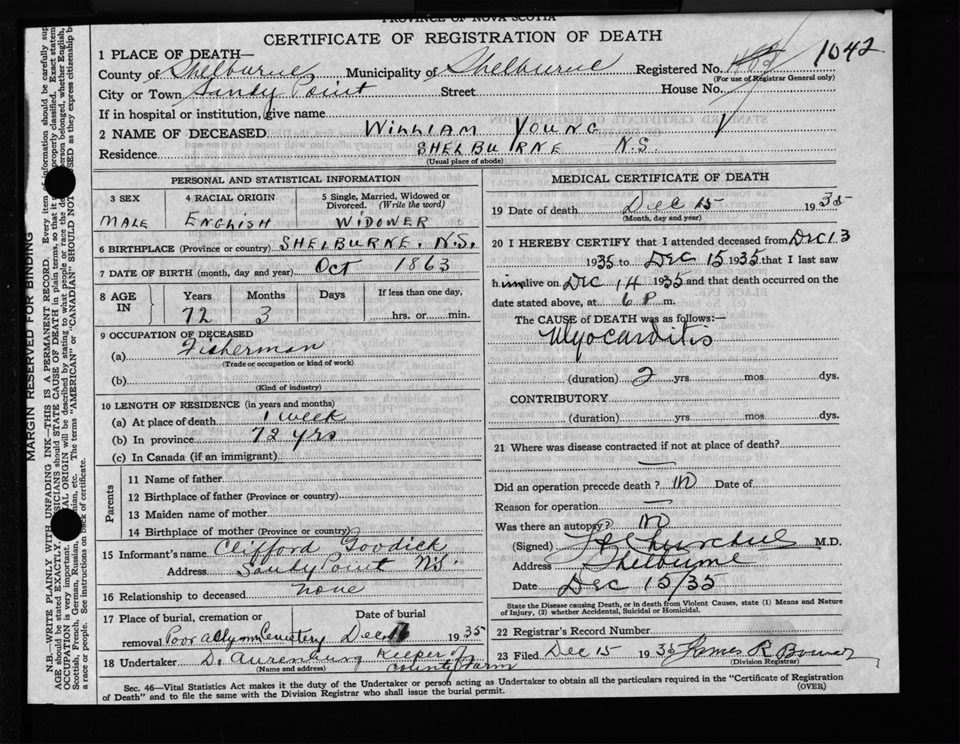 PROVINCE OF NOVA SCOTIA
CERTIFICATE OF REGISTRATION OF DEATH
1042
1 PLACE OF DEATH—
County of Shelburne Municipality of Shelburne Registered No.
(For use of Registrar General only)
City or Town Sandy Point Street House No.
If in hospital or institution, give name
2 NAME OF DECEASED WILLIAM YOUNG
Residence SHELBURNE N.S.
(Usual place of abode)
PERSONAL AND STATISTICAL INFORMATION
3 SEX 4 RACIAL ORIGIN 5 Single, Married, Widowed or Divorced. (Write the word)
MALE ENGLISH WIDOWER
6 BIRTHPLACE (Province or country) SHELBURNE. N.S.
7 DATE OF BIRTH (month, day and year) Oct 1863
8 AGE IN Years Months Days If less than one day,
72 3 hrs. or min.
9 OCCUPATION OF DECEASED
(a) Fisherman
(Trade or occupation or kind of work)
(b)
(Kind of industry)
10 LENGTH OF RESIDENCE (in years and months)
(a) At place of death 1 week
(b) In province 72 yrs
(c) In Canada (if an immigrant)
Parents
11 Name of father
12 Birthplace of father (Province or country)
13 Maiden name of mother
14 Birthplace of mother (Province or country)
15 Informant's name Clifford Goodick
Address Sandy Point N.S.
16 Relationship to deceased none
17 Place of burial, cremation or removal Date of burial
Poor Cemetery Dec 1935
18 Undertaker D. Keeper of County Farm
(Name and address)
MEDICAL CERTIFICATE OF DEATH
19 Date of death Dec 15 1935
(Month, day and year)
20 I HEREBY CERTIFY that I attended deceased from Dec 13
1935 to Dec 15 1935 that I last saw
him alive on Dec 14 1935 and that death occurred on the
date stated above, at 6 P. m.
The CAUSE of DEATH was as follows:—
Myocarditis
(duration) 2 yrs mos dys.
CONTRIBUTORY
(duration) yrs. mos. dys.
21 Where was disease contracted if not at place of death?
—
Did an operation precede death? no Date of
Reason for operation —
Was there an autopsy? no
(Signed) Churchill M.D.
Address Shelburne
Date Dec 15/35
State the Disease causing Death, or in death from Violent Causes, state (1) Means and Nature
of Injury, (2) whether Accidental, Suicidal or Homicidal.
22 Registrar's Record Number
23 Filed Dec 15 1935 James R Bower
(Division Registrar)
Sec. 46—Vital Statistics Act makes it the duty of the Undertaker or person acting as Undertaker to obtain all the particulars required in the "Certificate of Registration
of Death" and to file the same with the Division Registrar who shall issue the burial permit. (OVER)
MARGIN RESERVED FOR BINDING
N.B.—WRITE PLAINLY WITH UNFADING INK—THIS IS A PERMANENT RECORD. Every item of information should be carefully
AGE should be stated EXACTLY. should STATE CAUSE OF DEATH in plain terms, so that it properly classified. Exact
OCCUPATION is very important. ORIGIN will be described by stating to what people or race the person belonged, whether English,
Scottish, French, German, Russian, etc. The terms "AMERICAN" or "CANADIAN" SHOULD NOT as they express citizenship
a race or people. See instructions on back of certificate.